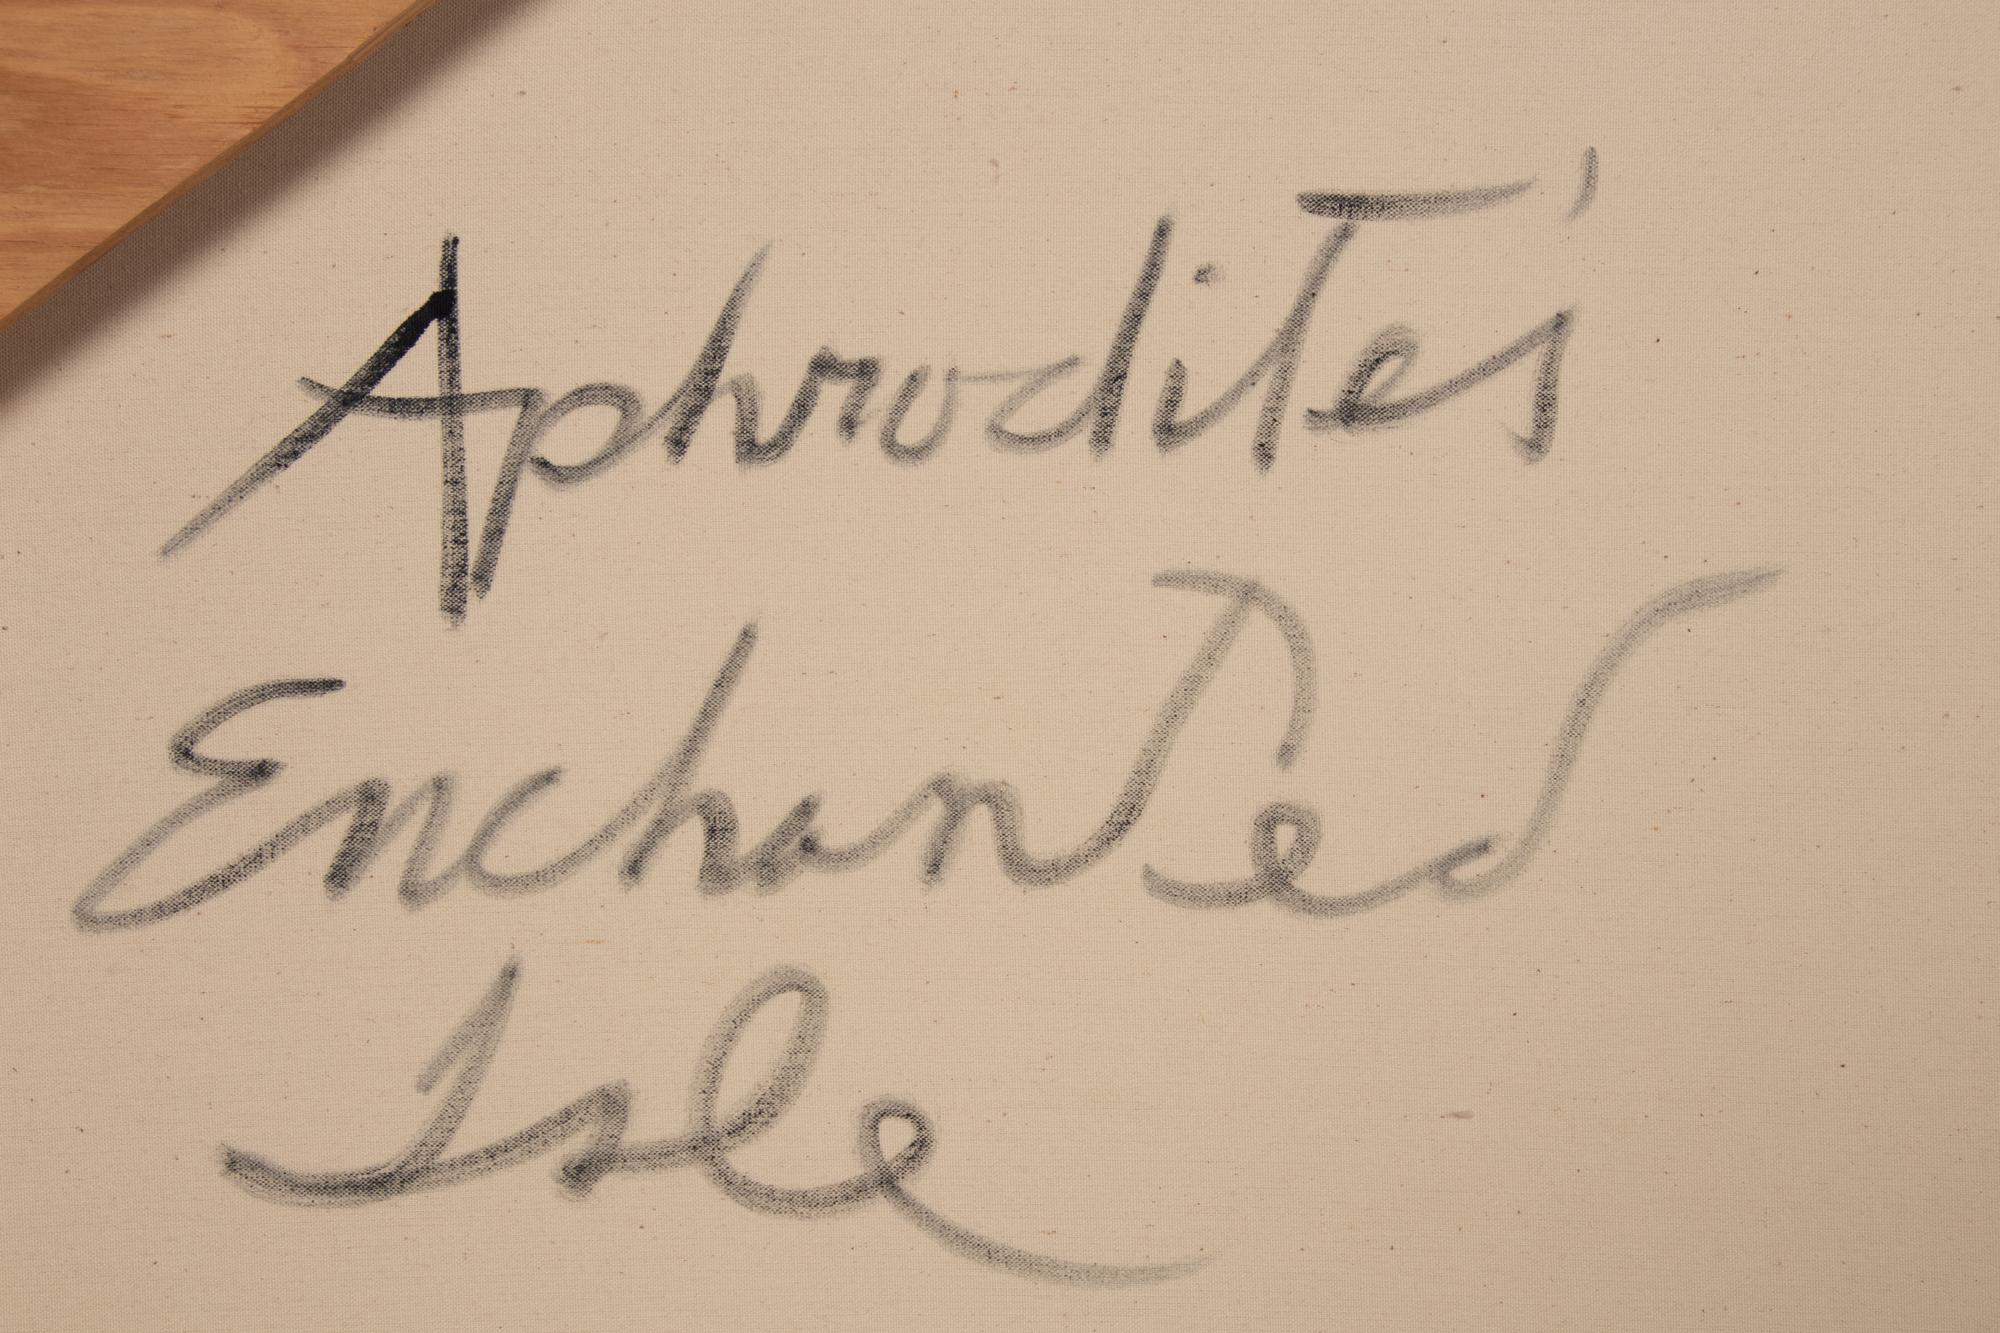 Aphrodites'
Enchanted
Isle